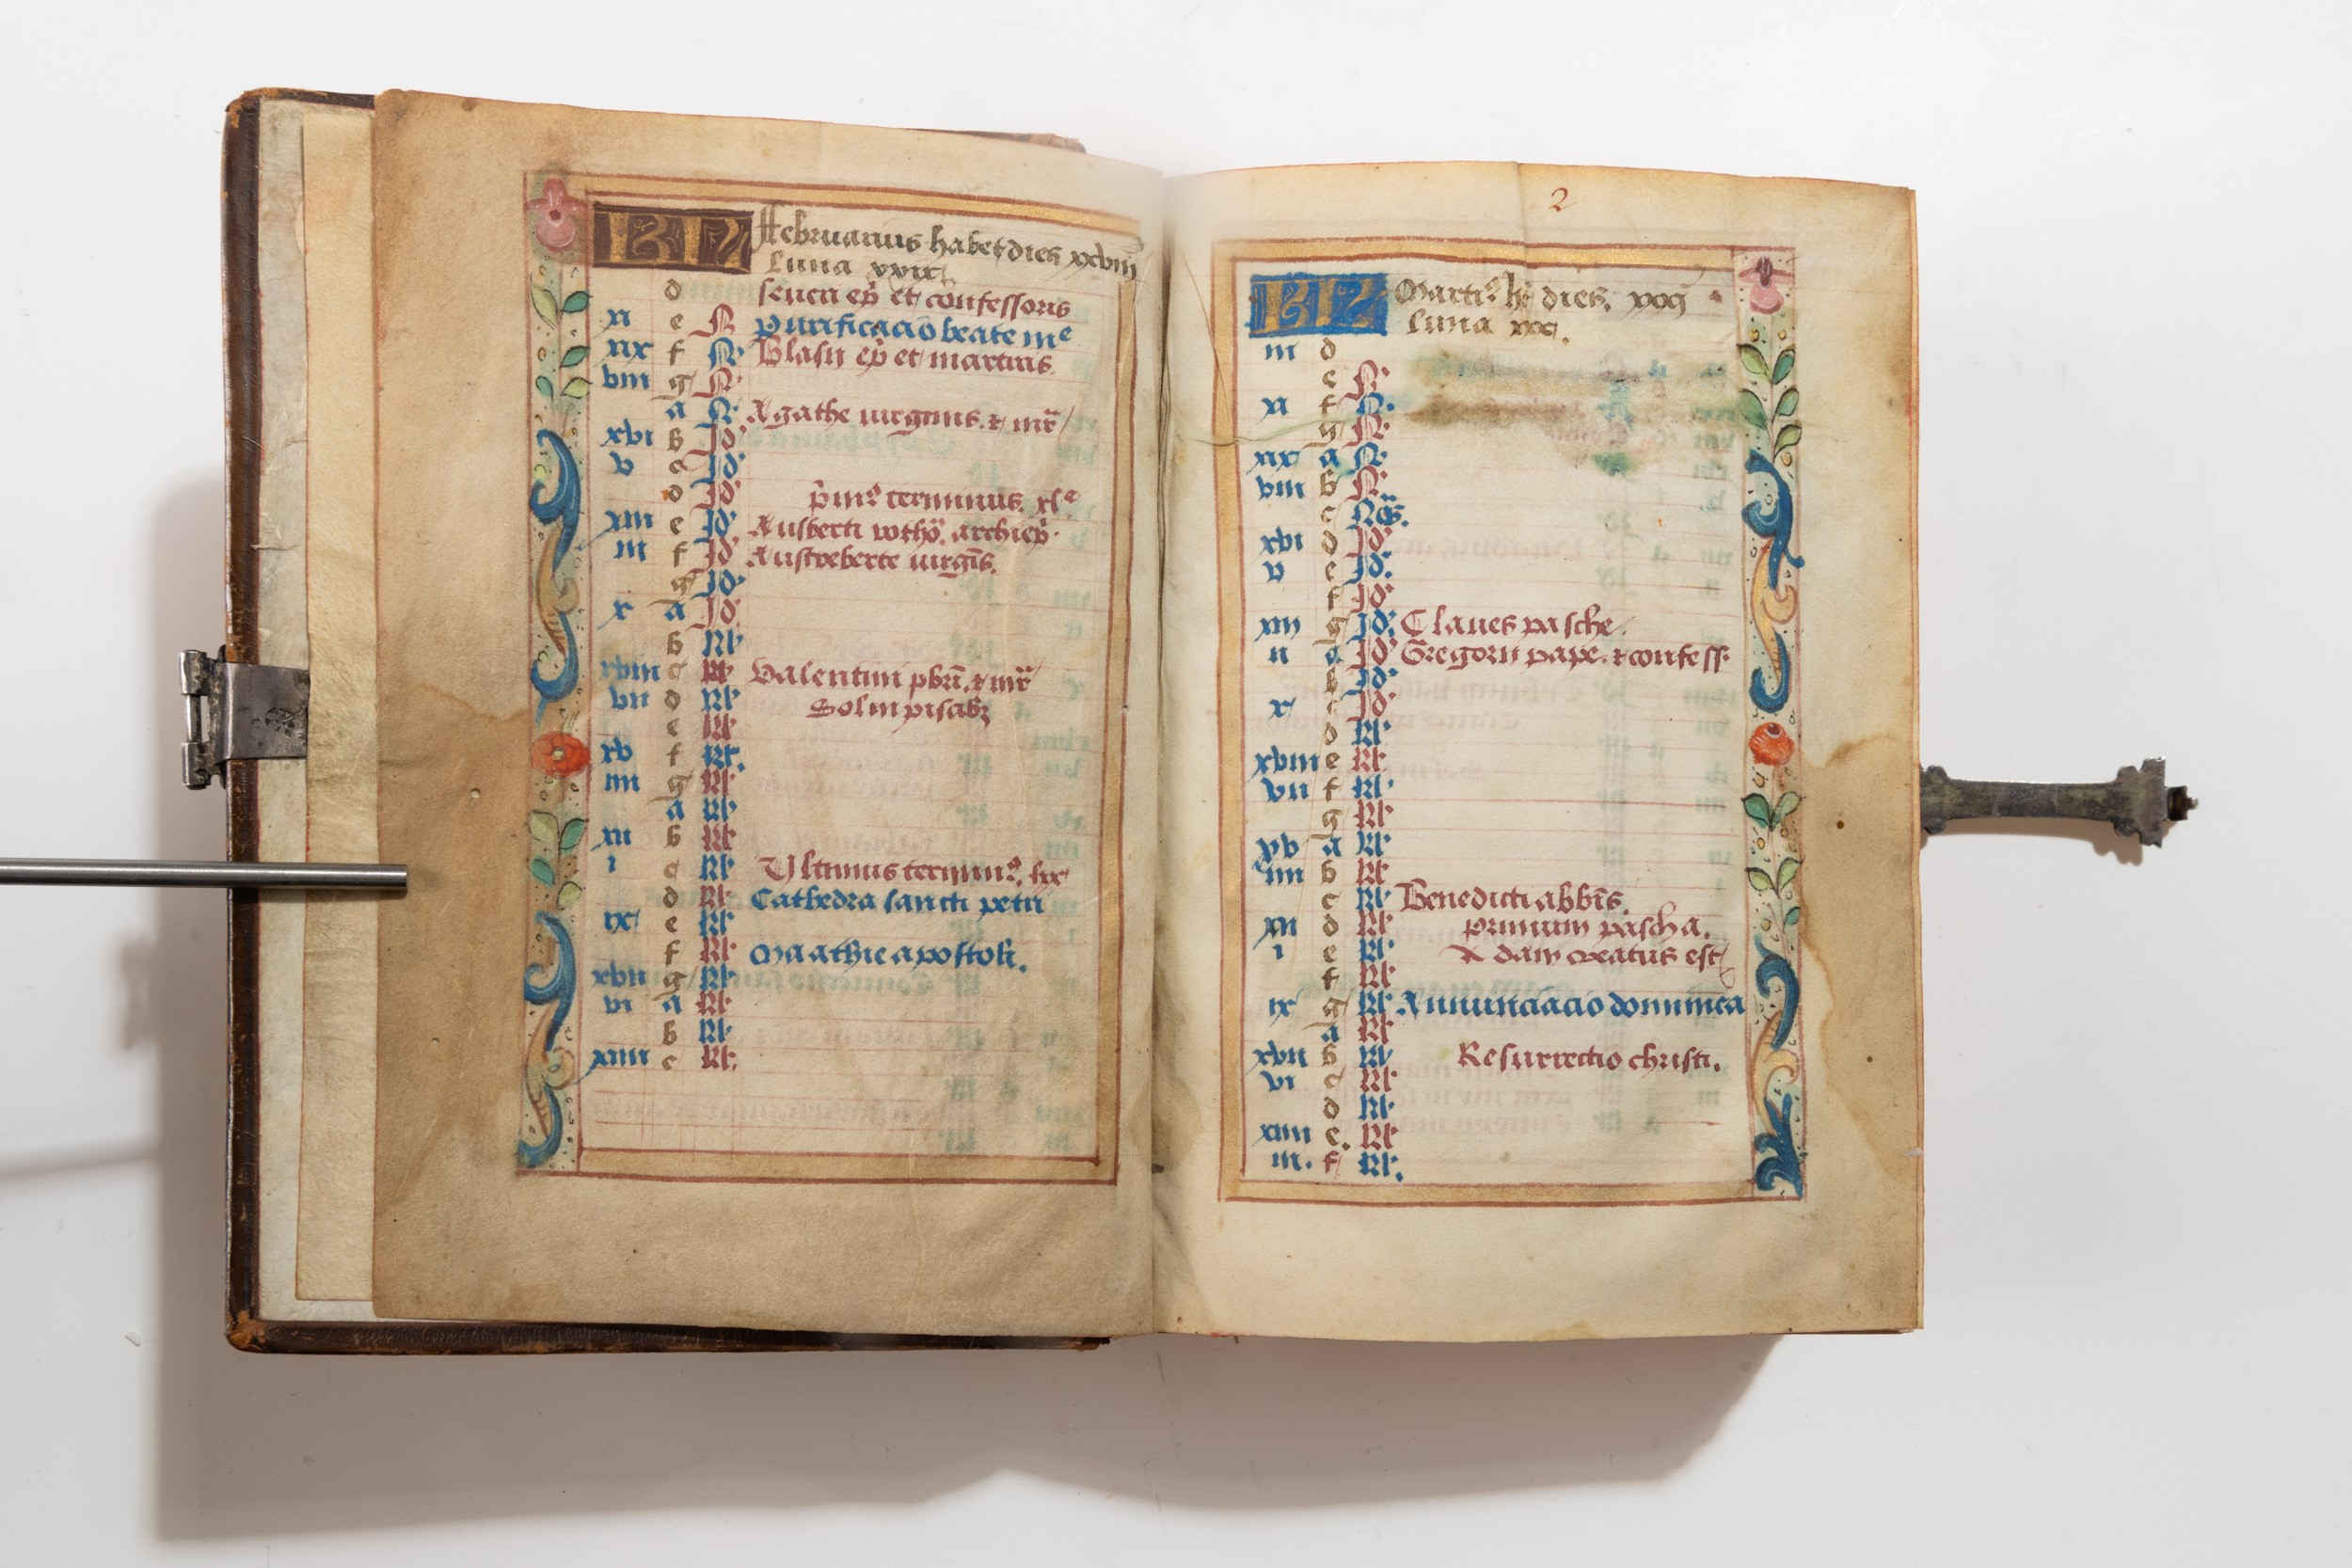 KL Februarius habet dies xxviii
Luna xxix.
d Seueri ep̃i et confessoris
xi e N Purificacio beate mᵉ
xix f N Blasii ep̃i et martiris
viii g N
a N Agathe uirginis. & mr̃
xvi b Id
v c Id
d Id p̃mꝰ terminus xlᵉ
xiii e Id Ausberti archiep̃
ii f Id Austreberte uirgĩs.
g Id
x a Id
b kl
xviii c kl Valentini pbr̃i. & mr̃
vii d kl Sol in piscibꝫ
e kl
xv f kl
iiii g kl
a kl
xii b kl
i c kl Vltimus terminꝰ. lxᵉ
d kl Cathedra sancti petri
ix e kl
f kl Mathie apostoli.
xvii g kl
vi a kl
b kl
xiiii c kl
2
KL Martiꝰ ht̃ dies. xxxj
Luna xxx.
iii d
e N
xi f N
g N
xix a N
viii b N
c Nõs.
xvi d Id
v e Id
f Id
xiii g Id Claues pasche.
ii a Id Gregorii pape. & confess
b Id
x c Id
d kl
xviii e kl
vii f kl
g kl
xv a kl
iiii b kl
c kl Benedicti abb̃is.
xii d kl Primum pascha.
i e kl Adam creatus est
f kl
ix g kl Annunciacio dominica
a kl
xvii b kl Resurrectio christi.
vi c kl
d kl
xiiii e kl
iii. f kl.